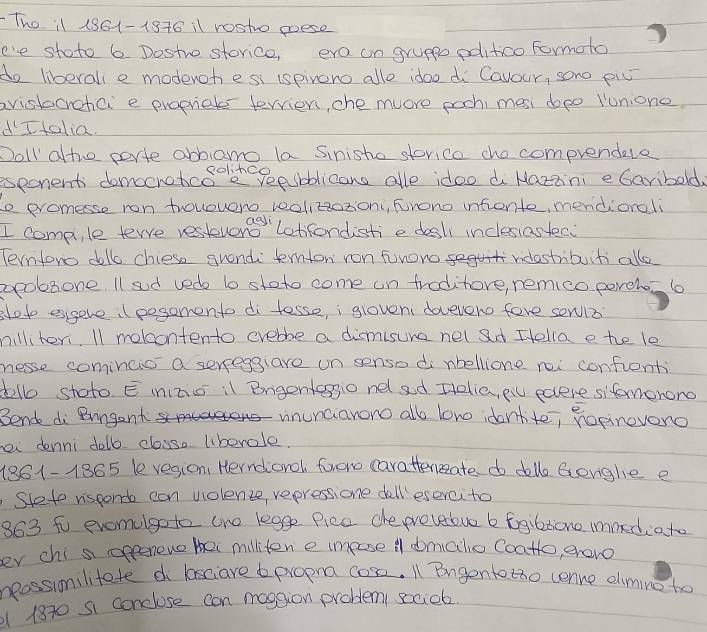 -Tra il 1861-1876 il nostro paese
stato la Destra storica, era un gruppo politico formato
da liberali e moderati e si ispirano alle idee di Cavour, sono più
aristocratici e proprietar terrieri, che muore pochi mesi dopo l'unione
d'Italia.
Dall'altra parte abbiamo la Sinistra storica che comprendeva
esponenti democratico politico e repubblicana alle idee di Mazzini e Garibaldi
Le promesse non trovavano realizzazioni, furono infrante, meridionali
I campi, le terre restavano agli Latifondisti e degli inclesiasteci
Territorio della chiesa grandi territori non furono seguiti ridistribuiti alla
popolazione. Il sud vede lo stato come un traditore, nemico perchè lo
stato esigeva il pagamento di tasse, i giovani dovevano fare servizi
militari. Il malcontento crebbe a dismisura nel Sud Italia e tra le
messe cominciò a serpeggiare un senso di ribellione nei confronti
dello stato. È iniziò il Brigantaggio nel sud Italia, più povere si formarono
Bande di Briganti rinunciarono alla loro identità, e rapinavano
nei danni della classe liberale.
1861-1865 le regioni Meridionali furono caratterizzate da della Guerriglie e
Stato risponde con violenze, repressione dell'esercito
1863 fu promulgato una legge Pica che prevedeva la fucilazione immediata
per chi si opponeva hai militari e impose il domicilio Coatto, erano
impossimilitate di lasciare la propria casa. Il Brigantaggio venne eliminato
el 1870 si conclose con maggiori problemi sociali